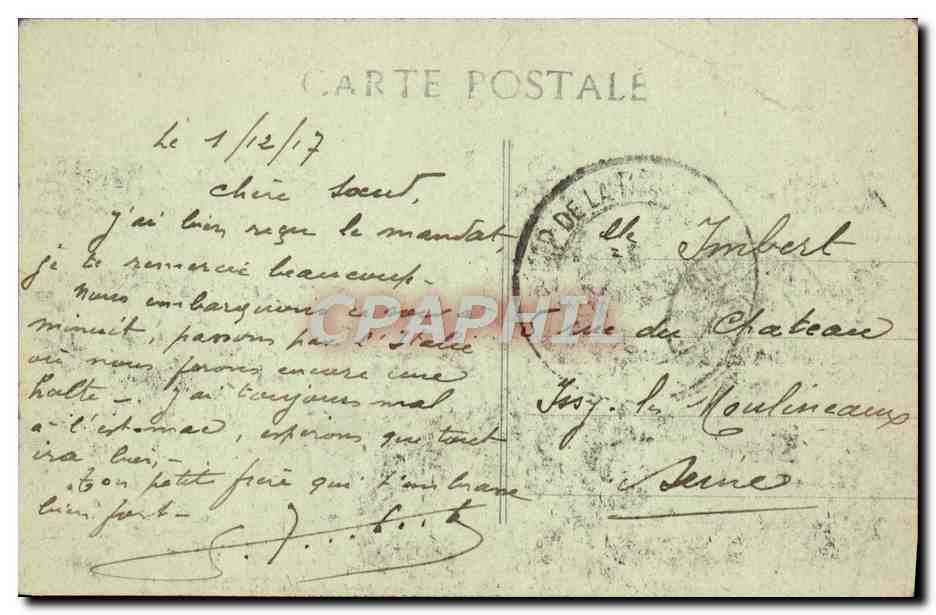 CARTE POSTALE
Le 1/12/17
Chère Soeur,
j'ai bien reçu le mandat,
je te remercie beaucoup -
Nous embarquons ce soir à
minuit, passons par l'Italie
où nous ferons encore une
halte - j'ai toujours mal
à l'estomac, espérons que tout
ira bien, -
Ton petit frère qui t'embrasse
bien fort -
DE LA
Mlle Imbert
5 rue du Chateau
Issy-les Moulineaux
Seine
CPAPHIL